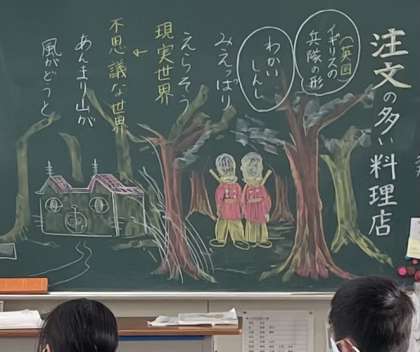 注文の多い料理店
（英国）
イギリスの
兵隊の形
わかい
しんし
みえっぱり
えらそう
現実世界
不思議な世界
あんまり山が
風がどうと